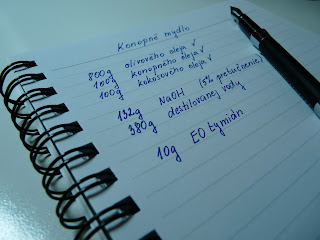 Konopné mydlo
800g olivového oleja √
100g konopného oleja √
100g kokosového oleja √
132g NaOH (5% pretučnenie)
380g destilovanej vody
10g EO tymián